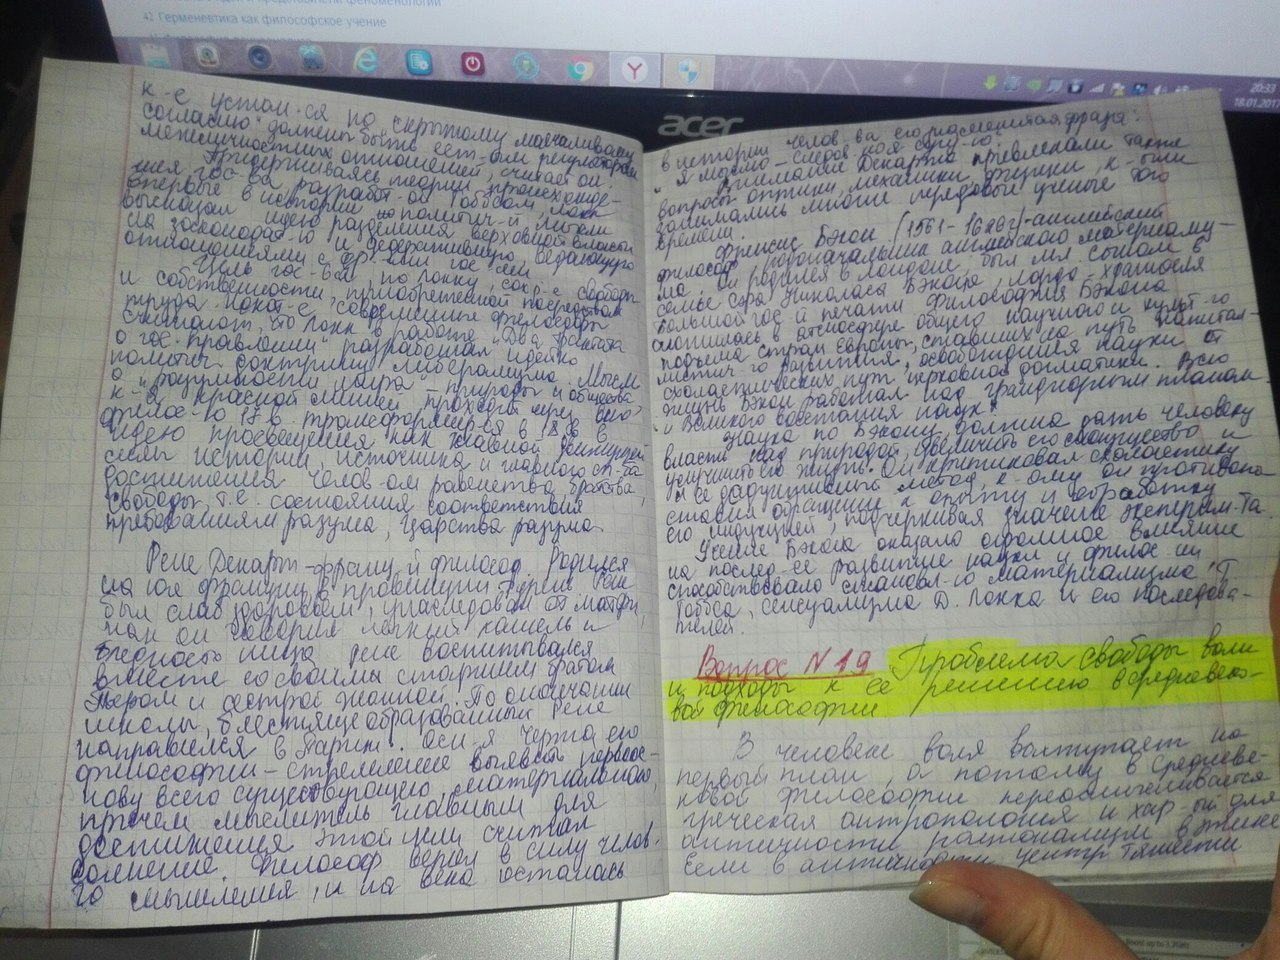 42 Герменевтика как философское учение
acer
20:33
18.01.2017
к-е устан-ся по скрытому молчаливому
согласию должны быть ест-ым регулятором
межличностных отношений, считает он.
Придерживаясь теории происхожде-
ния гос-ва разработ-ой Гоббсом, Локк
впервые в истории политич-й мысли
высказал идею разделения верховной власти
на законодат-ю и федеративную, ведающую
отношениями с др-ими гос-ми
Цель гос-ва, по Локку, сохр-е свободы
и собственности, приобретенной посредством
труда. современные философы
считают, что Локк в работе "Два трактата
о гос. правлении" разработал идейно
политич. доктрину либерализма. Мысль
о "разумности мира" - природы и общества
к-я красной линией проходит через всю
филос-ю 17 в. трансформир-ся в 18 в. в
идею просвещения как главной движущей
силы истории, источника и главного ср-ва
достижения челов-ом равенства, братства,
свободы, т.е. состояния соответствия
требованиям разума, царства разума.
Рене Декарт - франц-й философ. Родился
на юге Франции в провинции Турень. Рене
был слаб здоровьем, унаследовал от матери,
как он говорил легкий кашель и
бледность лица. Рене воспитывался
вместе со своими старшим братом
Пьером и сестрой Жанной. По окончании
школы, блестяще образованный Рене
направился в Париж. Осн-я черта его
философии - стремление выявить первоос-
нову всего существующего, материального,
причем мыслитель главным для
достижения этой цели считал
сомнение. Философ верил в силу челов-
го мышления, и на века осталась
в истории челов-ва его знаменитая фраза:
"Я мыслю - следов-но я сущ-ю".
Внимание Декарта привлекали также
вопросы оптики, механики, физики, к-ыми
занимались многие передовые ученые того
времени.
Френсис Бэкон (1561-1626г) - английский
философ, родоначальник английского материализ-
ма. Он родился в Лондоне, был мл. сыном в
семье сэра Николаса Бэкона, лорда-хранителя
большой гос-й печати. Философия Бэкона
сложилась в атмосфере общего научного и культ-го
подъема стран Европы, ставших на путь капитал-
истич-го развития, освобождения науки от
схоластических пут церковной догматики. Всю
жизнь Бэкон работал над грандиозным планом
"Великого восстания наук".
Наука по Бэкону должна дать человеку
власть над природой, увеличить его могущество и
улучшить его жизнь. Он критиковал схоластику
и её дедуктивный метод, к-ому он противопо-
ставил обращение к опыту и обработку
его индукцией, подчеркивая значение эксперим-та.
Учение Бэкона оказало огромное влияние
на послед-ее развитие науки и филос-ии
способствовало становл-ю материализма Т.
Гоббса, сенсуализма Д. Локка и его последова-
телей.
Вопрос №19 Проблема свободы воли
и подходы к её решению в средневеко-
вой философии
В человеке воля выступает на
первый план, а потому в средневе-
ковой философии переосмысливается
греческая антропология и хар-ый для
античности рационализм в этике.
Если в античности центр тяжести